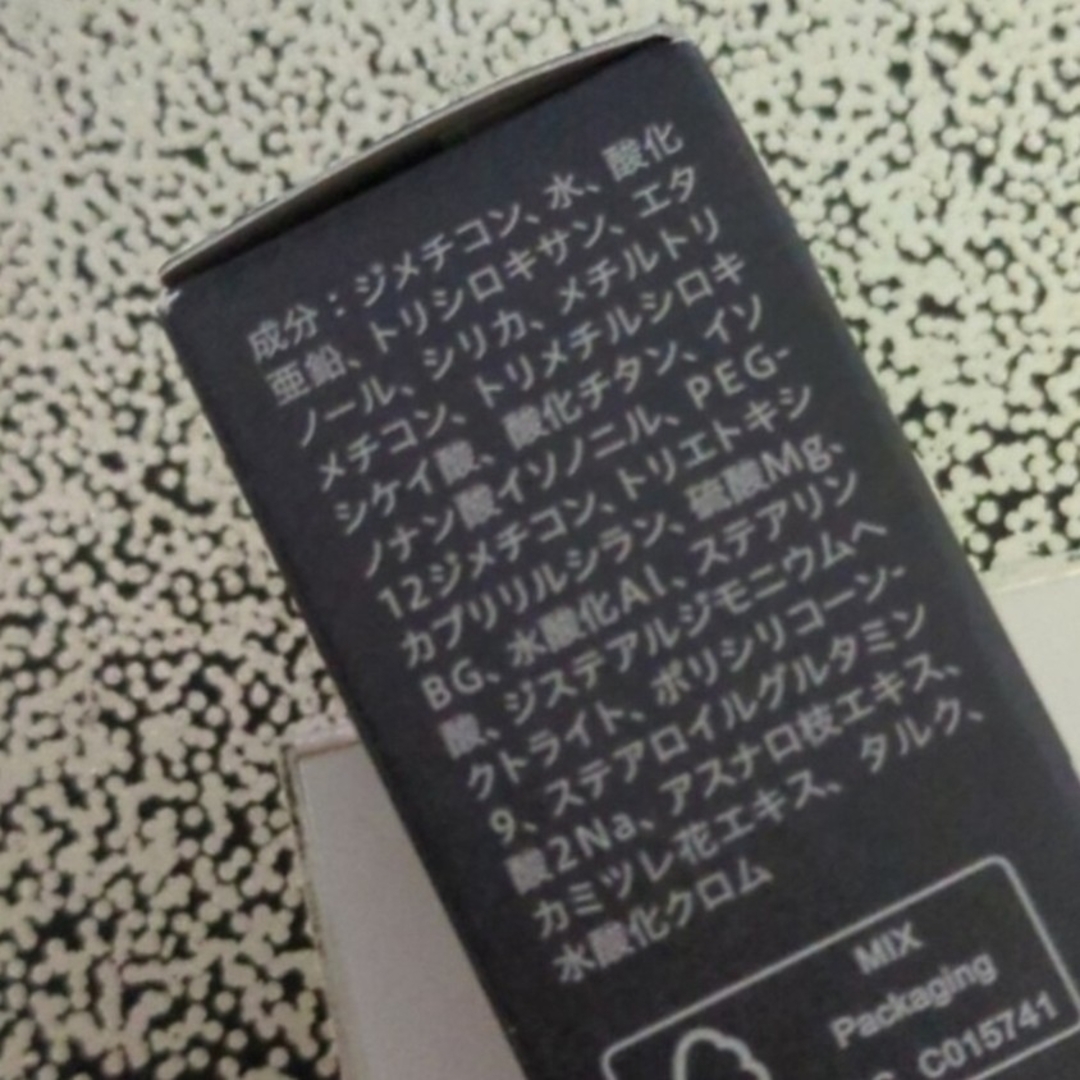 成分：ジメチコン、水、酸化
亜鉛、トリシロキサン、エタ
ノール、シリカ、メチルトリ
メチコン、トリメチルシロキ
シケイ酸、酸化チタン、イソ
ノナン酸イソノニル、PEG-
12ジメチコン、トリエトキシ
カプリリルシラン、硫酸Mg、
BG、水酸化Al、ステアリン
酸、ジステアルジモニウムヘ
クトライト、ポリシリコーン-
9、ステアロイルグルタミン
酸2Na、アスナロ枝エキス、
カミツレ花エキス、タルク、
水酸化クロム
MIX
Packaging
C015741